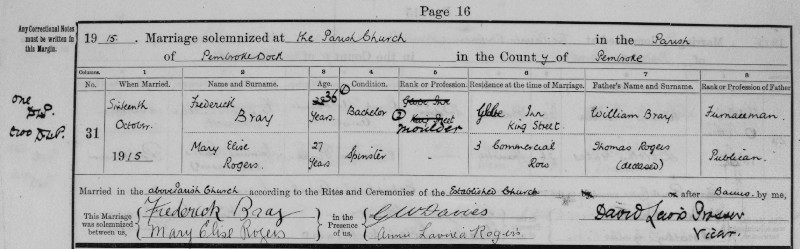 Page 16
Any Correctional Notes
must be written in
this Margin.
1915. Marriage solemnized at the Parish Church in the Parish
of Pembroke Dock in the County of Pembroke
Columns. 1 2 3 4 5 6 7 8
No. When Married. Name and Surname. Age. Condition. Rank or Profession. Residence at the time of Marriage. Father's Name and Surname. Rank or Profession of Father
one
two
31
Sixteenth October. 1915
Frederick Bray 36 Years. Bachelor Globe Inn King Street moulder Globe Inn King Street William Bray Furnaceman.
Mary Elise Rogers. 27 Years Spinster - 3 Commercial Row Thomas Rogers (deceased) Publican.
Married in the above Parish Church according to the Rites and Ceremonies of the Established Church after Banns by me,
This Marriage was solemnized between us, Frederick Bray Mary Elise Rogers
in the Presence of us, G W Davies Lavinia Rogers
David Prosser
Vicar.